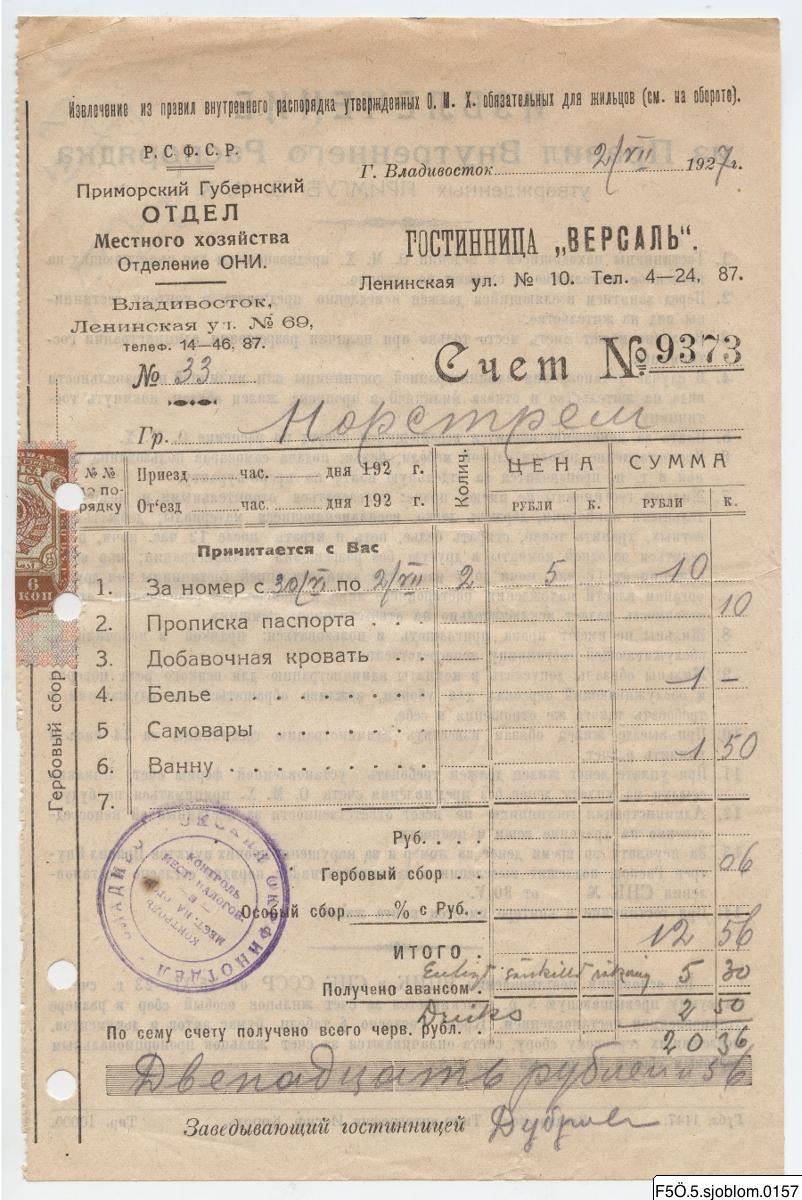 Извлечение из правил внутреннего распорядка утвержденных О. М. Х. обязательных для жильцов (см. на обороте).
Р. С. Ф. С. Р.
Приморский Губернский
ОТДЕЛ
Местного хозяйства
Отделение ОНИ.
Владивосток,
Ленинская ул. № 69,
телеф. 14—46, 87.
№ 33
Г. Владивосток 2/VII 1927 г.
ГОСТИННИЦА „ВЕРСАЛЬ“.
Ленинская ул. № 10. Тел. 4—24, 87.
Счет № 9373
Гр. Норстрем
№№ по порядку
Приезд час. дня 192 г.
От‘езд час. дня 192 г.
Колич.
ЦЕНА
РУБЛИ К.
СУММА
РУБЛИ К.
Причитается с Вас
1. За номер с 30/VI по 2/VII 2 5 10
2. Прописка паспорта . . 10
3. Добавочная кровать . .
4. Белье . . . . . . . . 1 —
5 Самовары . . . . . .
6. Ванну . . . . . . . . 1 50
7.
Руб. . .
Гербовый сбор . . 06
Особый сбор % с Руб. .
ИТОГО . 12 56
Enligt särskild räkning 5 30
Получено авансом .
Dricks 2 50
По сему счету получено всего черв. рубл. . . 20 36
Двенадцать рублей и 56
Заведывающий гостинницей
Гербовый сбор
6 КОП
КОНТРОЛЬ
МЕСТ. НАЛОГОВ
F5Ö.5.sjoblom.0157